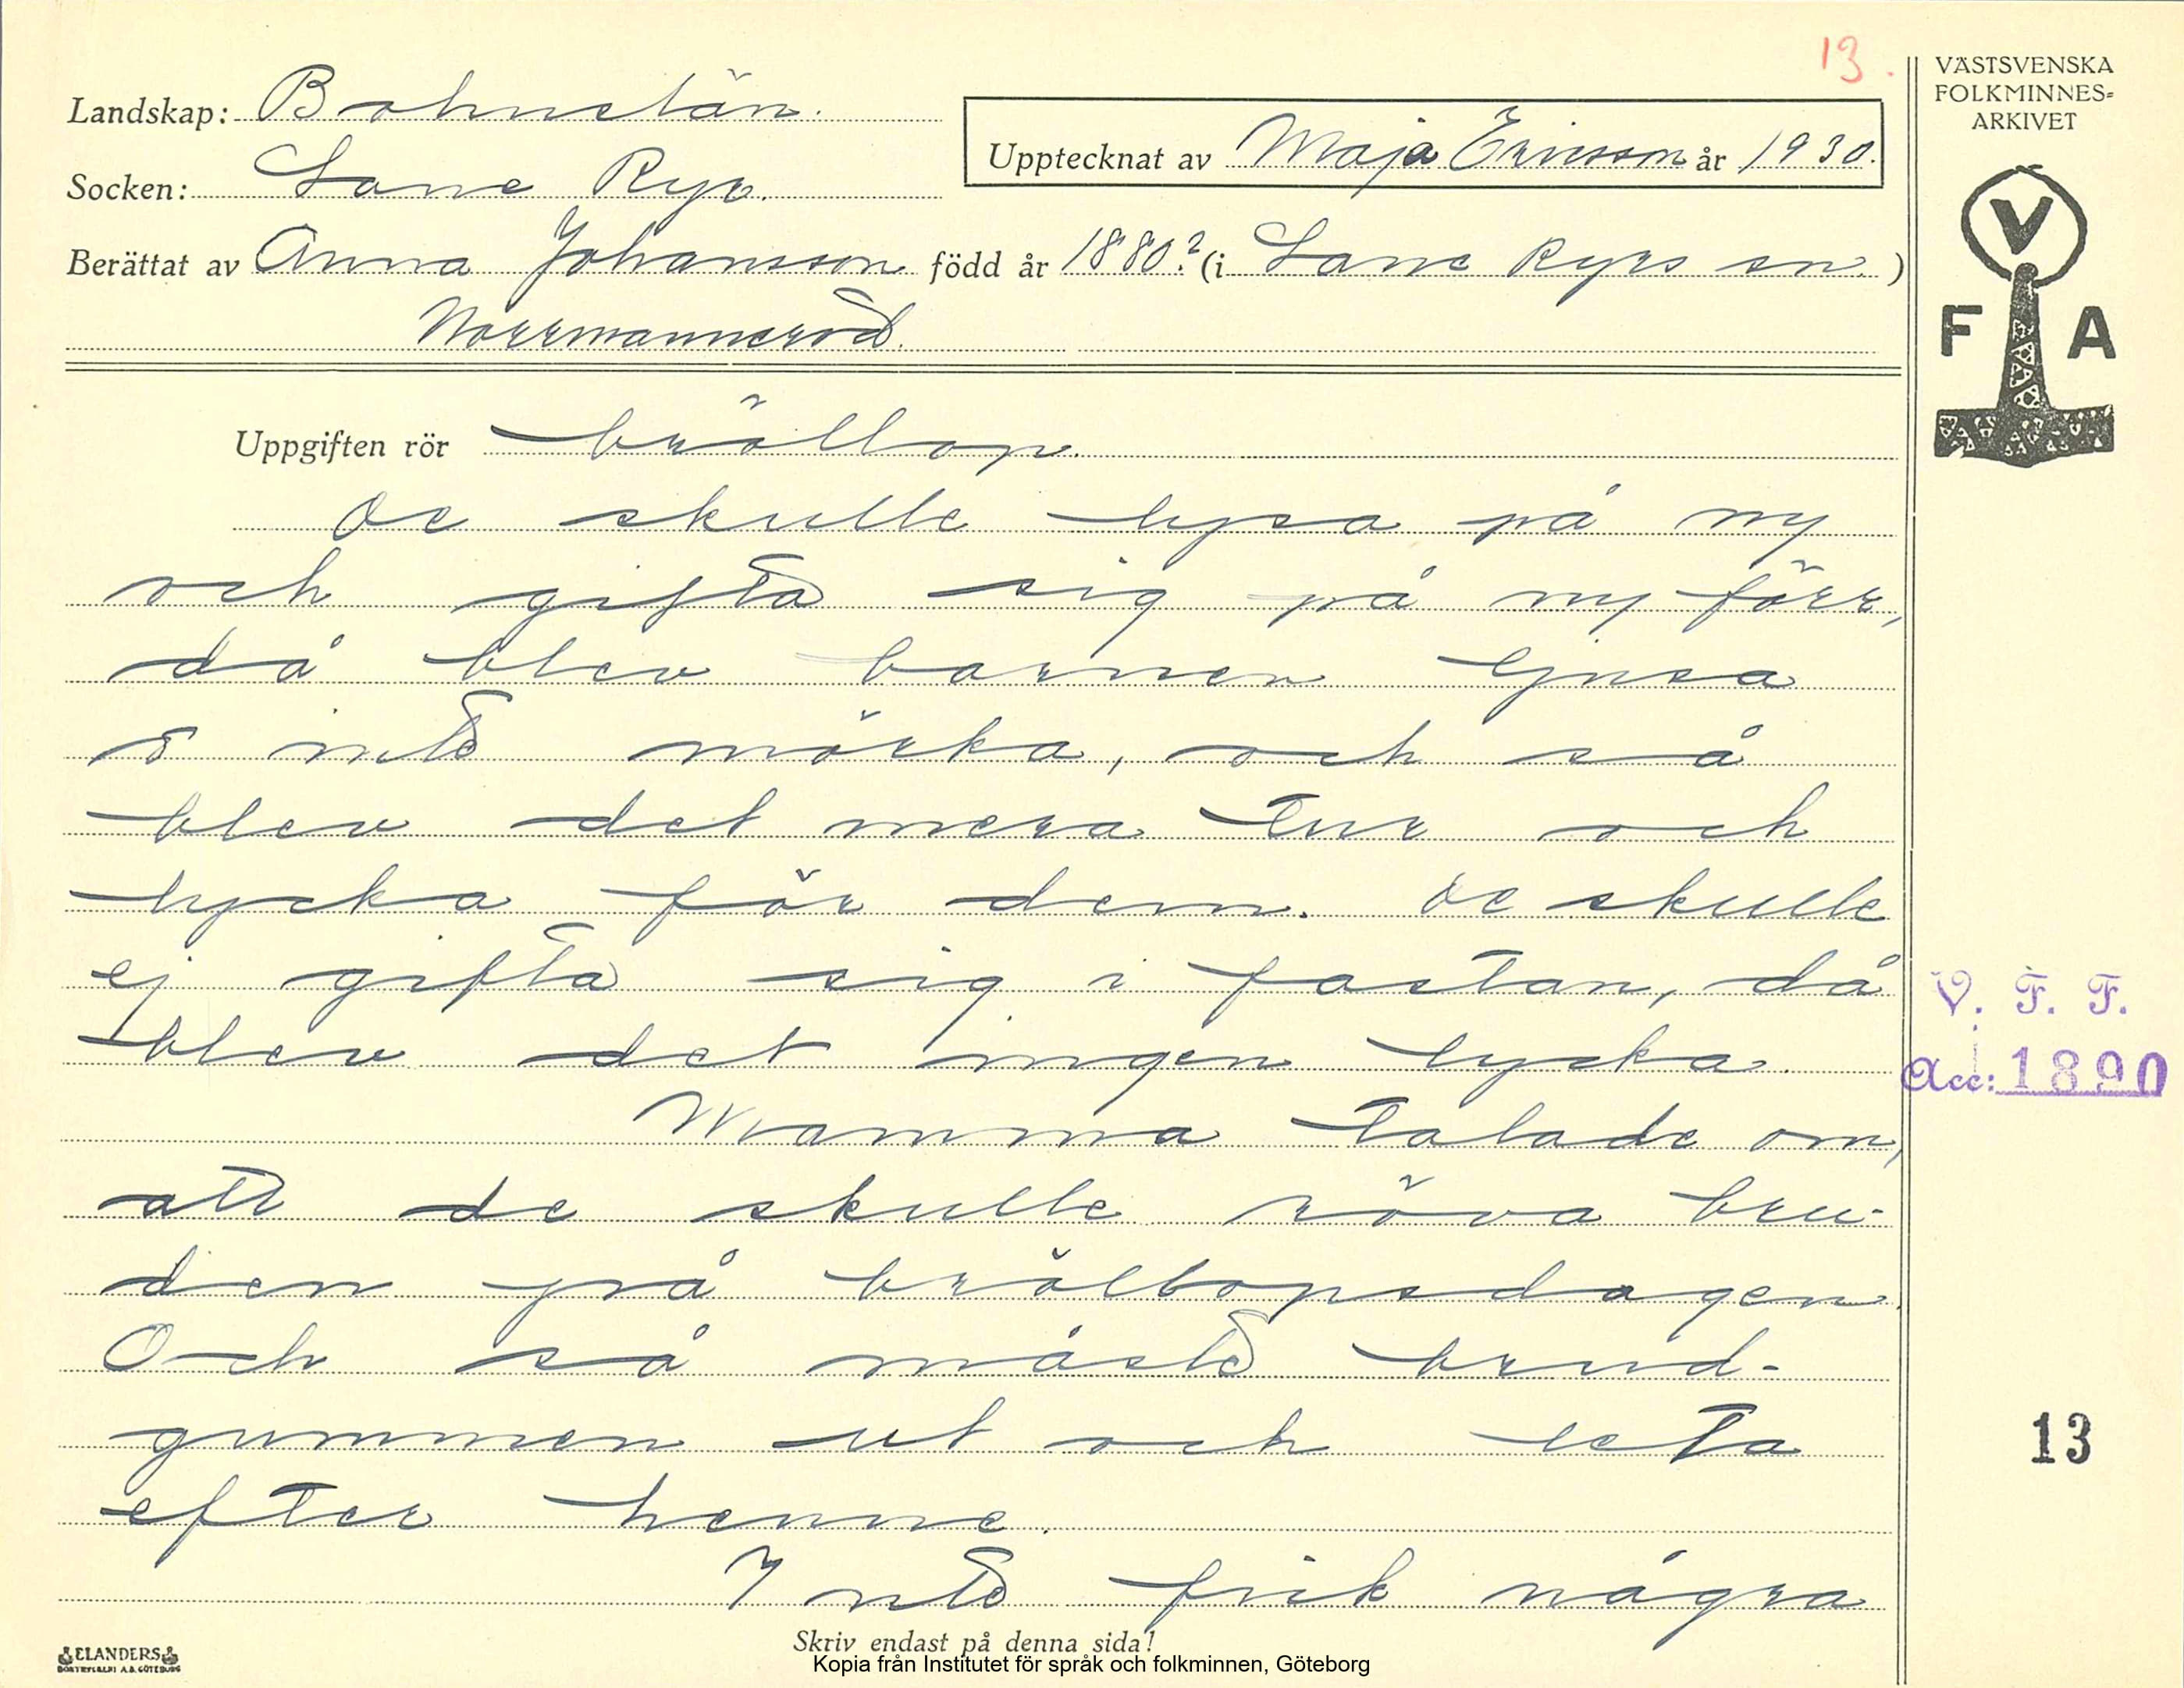 13.
VÄSTSVENSKA
FOLKMINNES-
ARKIVET
Landskap: Bohuslän.
Upptecknat av Maja Ericsson år 1930.
Socken: Lane Ryr.
Berättat av Anna Johansson född år 1880? (i Lane Ryrs sn.)
Norrmanneröd.
V
F A
Uppgiften rör bröllop.
De skulle lysa på ny
och gifta sig på ny förr,
då blev barnen ljusa
o inte mörka, och så
blev det mera tur och
lycka för dem. De skulle
ej gifta sig i fastan, då
blev det ingen lycka.
Mamma talade om,
att de skulle röva bru-
den på bröllopsdagen.
Och så måste brud-
gummen ut och leta
efter henne.
Inte fick några
V. F. F.
Acc: 1890
13
Skriv endast på denna sida!
ELANDERS
BOKTRYCKERI A.B. GÖTEBORG
Kopia från Institutet för språk och folkminnen, Göteborg